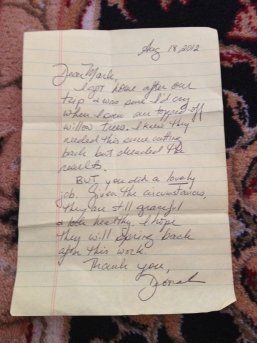 Aug 18, 2012
Dear Mark,
I got home after our
trip & was sure I'd cry
when I saw our
willow trees. I knew they
needed this severe cutting
back but dreaded the
results.
BUT, you did a lovely
job. Given the circumstances,
they are still graceful
& look healthy. I hope
they will spring back
after this work.
Thank you,